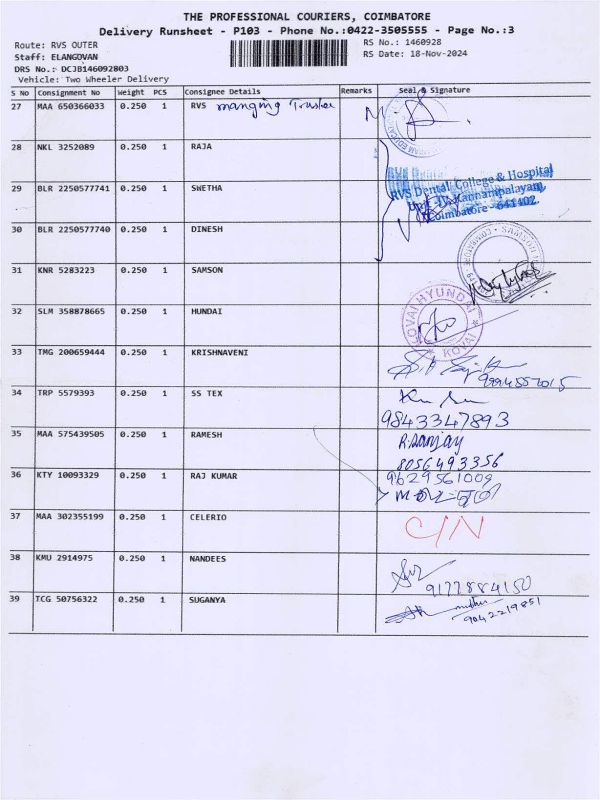 THE PROFESSIONAL COURIERS, COIMBATORE
Delivery Runsheet - P103 - Phone No.:0422-3505555 - Page No.:3
Route: RVS OUTER
RS No.: 1460928
Staff: ELANGOVAN
RS Date: 18-Nov-2024
DRS No.: DCJB146092803
Vehicle: Two Wheeler Delivery
S No Consignment No Weight PCS Consignee Details Remarks Seal & Signature
27 MAA 650366033 0.250 1 RVS
28 NKL 3252089 0.250 1 RAJA
29 BLR 2250577741 0.250 1 SWETHA
RVS Dental College & Hospital
Kannampalayam,
Coimbatore - 641402.
30 BLR 2250577740 0.250 1 DINESH
31 KNR 5283223 0.250 1 SAMSON
32 SLM 358878665 0.250 1 HUNDAI
KOVAI HYUNDAI
KOVAI
33 TMG 200659444 0.250 1 KRISHNAVENI
34 TRP 5579393 0.250 1 SS TEX
9843347893
35 MAA 575439505 0.250 1 RAMESH
R.Sanjay
8056493356
36 KTY 10093329 0.250 1 RAJ KUMAR
9629561009
37 MAA 302355199 0.250 1 CELERIO
C/N
38 KMU 2914975 0.250 1 NANDEES
9177884150
39 TCG 50756322 0.250 1 SUGANYA
9042219851